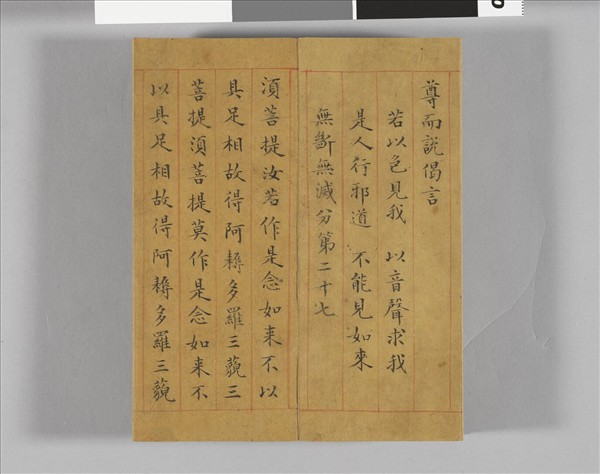 尊而說偈言
若以色見我 以音聲求我
是人行邪道 不能見如來
無斷無滅分第二十七
須菩提汝若作是念如来不以
具足相故得阿耨多羅三藐三
菩提須菩提莫作是念如来不
以具足相故得阿耨多羅三藐